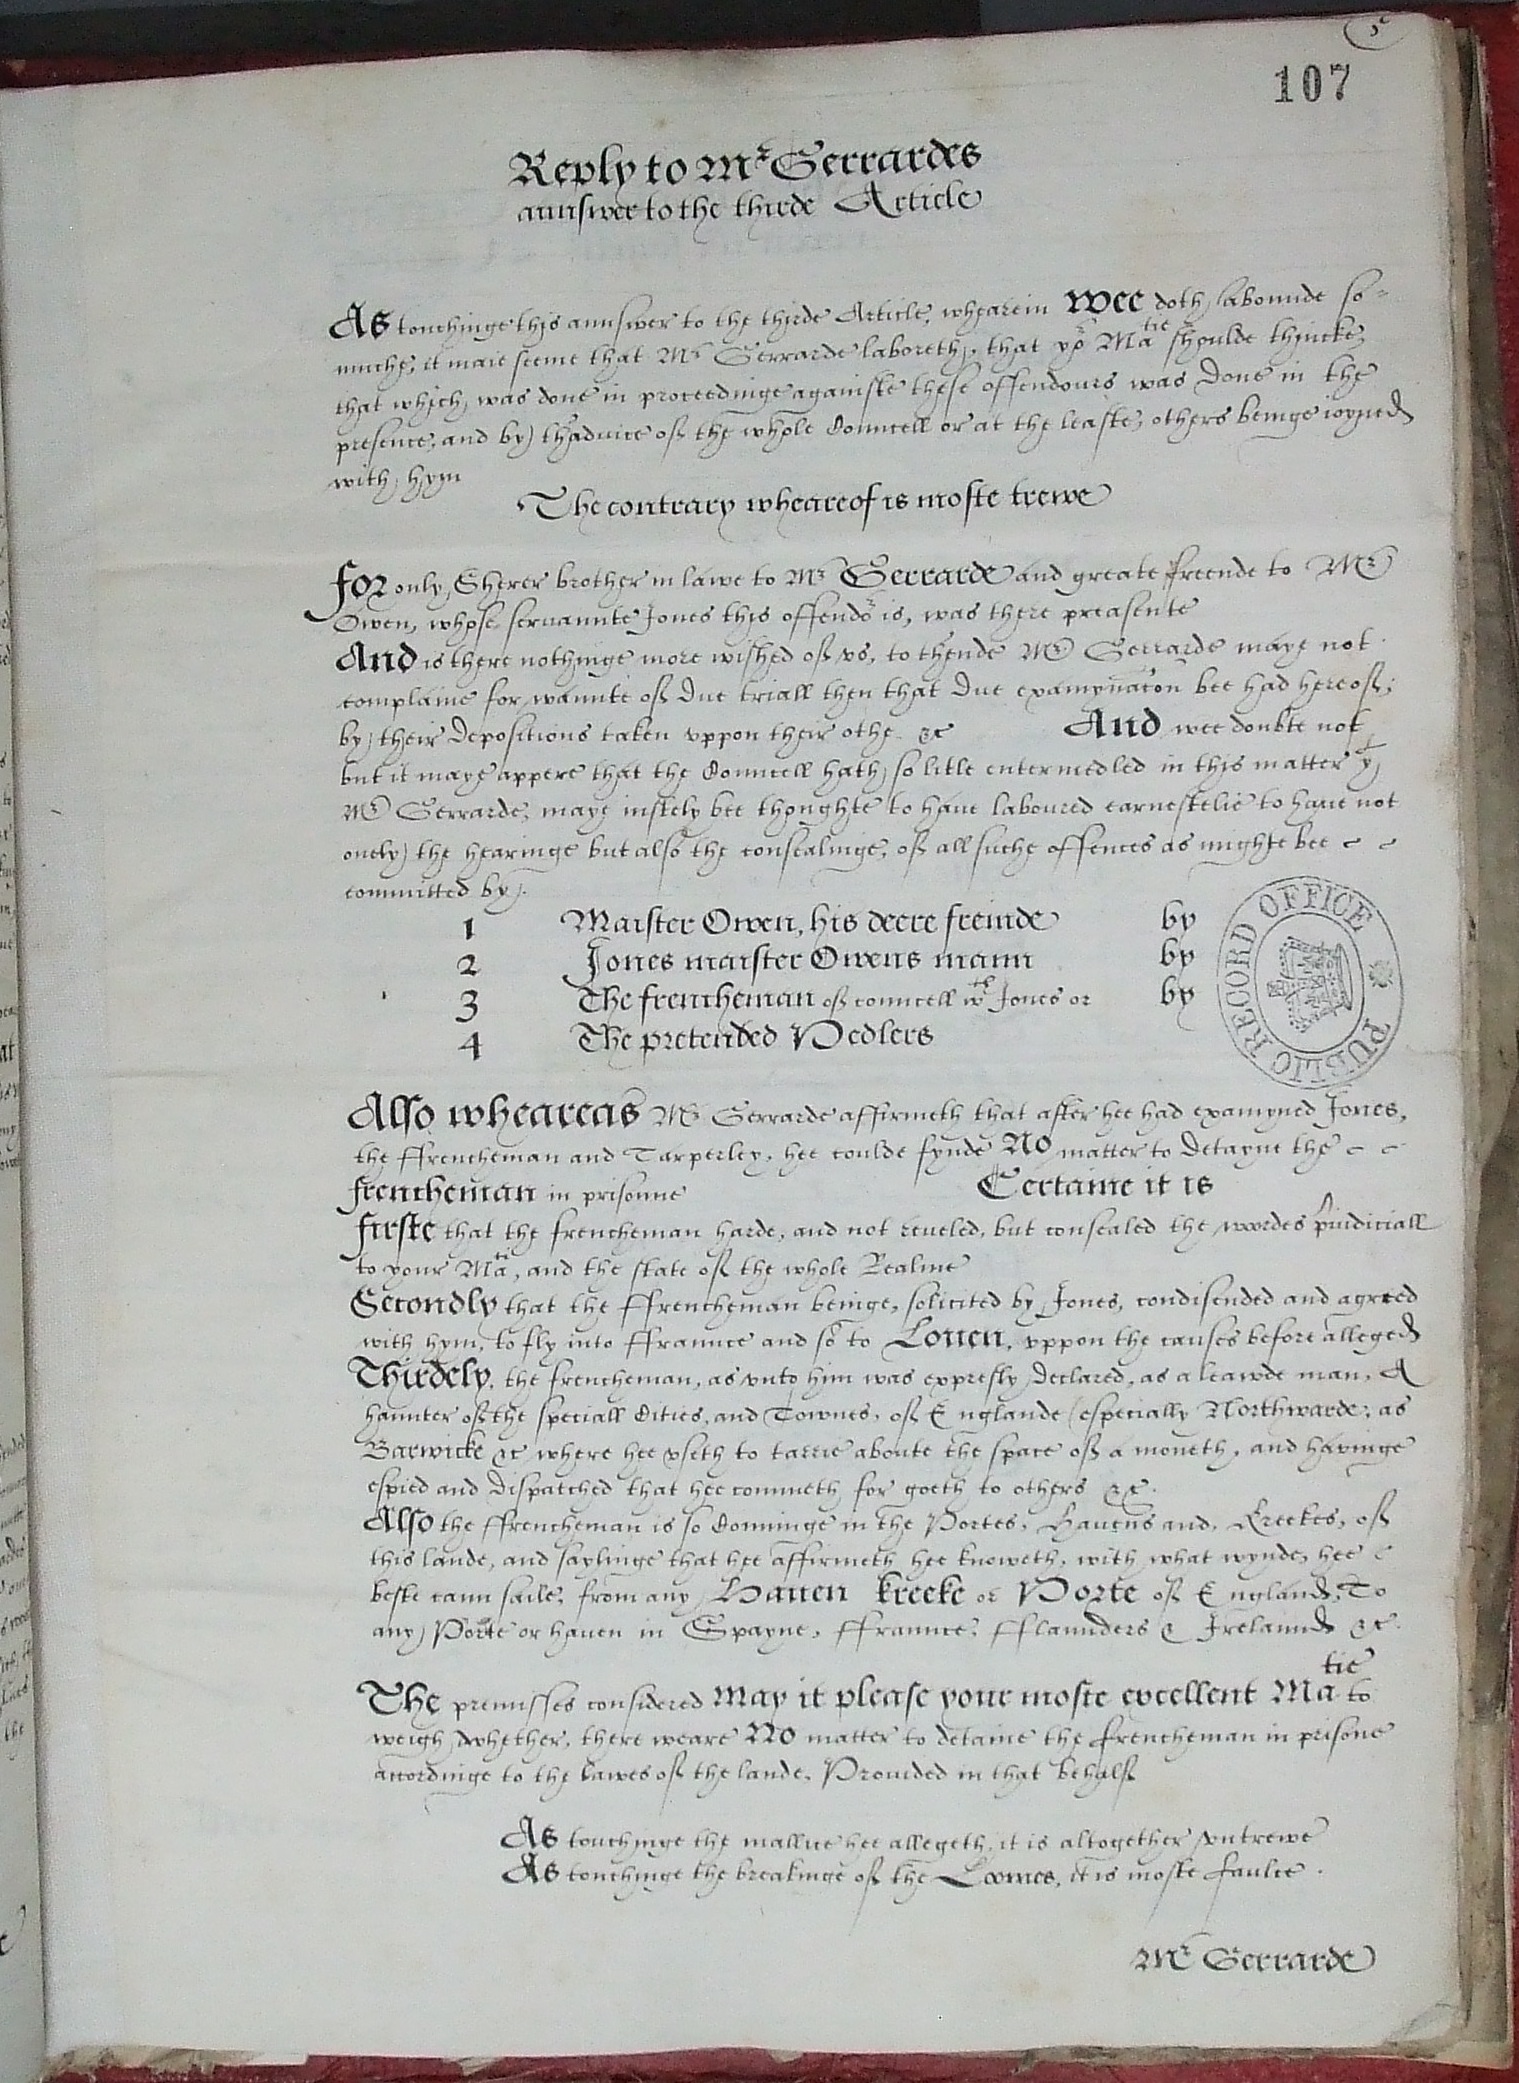 107
Reply to Mr Gerrardes
aunswer to the thirde Article
As touchinge this aunswer to the thirde Article, whearein wee doth labounde so-
muche, it maie seeme that Mr Gerrarde laboreth, that yor Matie shoulde thincke,
that which was done in proceedinge againste these offendours was done in the
presence, and by thadvice of the whole Councell or at the leaste, others beinge ioyned
with hym
The contrary wheareof is moste trewe
For only Sherer brother in lawe to Mr Gerrarde and greate freende to Mr
Owen, whose servannte Jones this offendor is, was there preasente
And is there nothinge more wished of vs, to thende Mr Gerrarde maye not
complaine for waunte of due triall then that due examynacon bee had hereof,
by their depositions taken vppon their othe &c And wee doubte not
but it maye appere that the Councell hath so litle entermedled in this matter yt
Mr Gerrarde, maye iustely bee thoughte to have laboured earnestelie to have not
onely the hearinge but also the consealinge, of all suche offences as mighte bee
committed by
1 Maister Owen, his deere freinde by
2 Jones maister Owens mann by
3 The frencheman of councell wth Jones or by
4 The pretended Pedlers
PUBLIC RECORD OFFICE
Also wheareas Mr Gerrarde affirmeth that after hee had examyned Jones,
the ffrencheman and Tarperley, hee coulde fynde No matter to detayne the
frencheman in prisonne Certaine it is
firste that the frencheman harde, and not reveled, but consealed the wordes piudiciall
to your Matie, and the state of the whole Realme
Secondly that the ffrencheman beinge, solicited by Jones, condisended and agreed
with hym, to fly into ffraunce and so to Loven, vppon the causes before alleged
Thirdely, the frencheman, as vnto him was expresly declared, as a leawde man, A
haunter of the speciall Cities, and Townes, of Englande (especially Northwarde, as
Barwicke &c where hee vseth to tarrie aboute the space of a moneth, and havinge
espied and dispatched that hee commeth for goeth to others &c.
Also the ffrencheman is so Conninge in the Portes, Havens and, Creekes, of
this lande, and saylinge that hee affirmeth hee knoweth, with what wynde, hee
beste cann saile, from any Haven kreeke or Porte of England, To
any Porte or haven in Spayne, ffraunce, fflaunders & Irelaund &c.
The premisses considered May it please your moste excellent Matie to
weigh whether, there weare No matter to detaine the frencheman in prisone
accordinge to the lawes of the lande, Provided in that behalf
As touchinge the mallice hee allegeth, it is altogether vntrewe
As touchinge the breakinge of the Loomes, it is moste faulce.
Mr Gerrarde